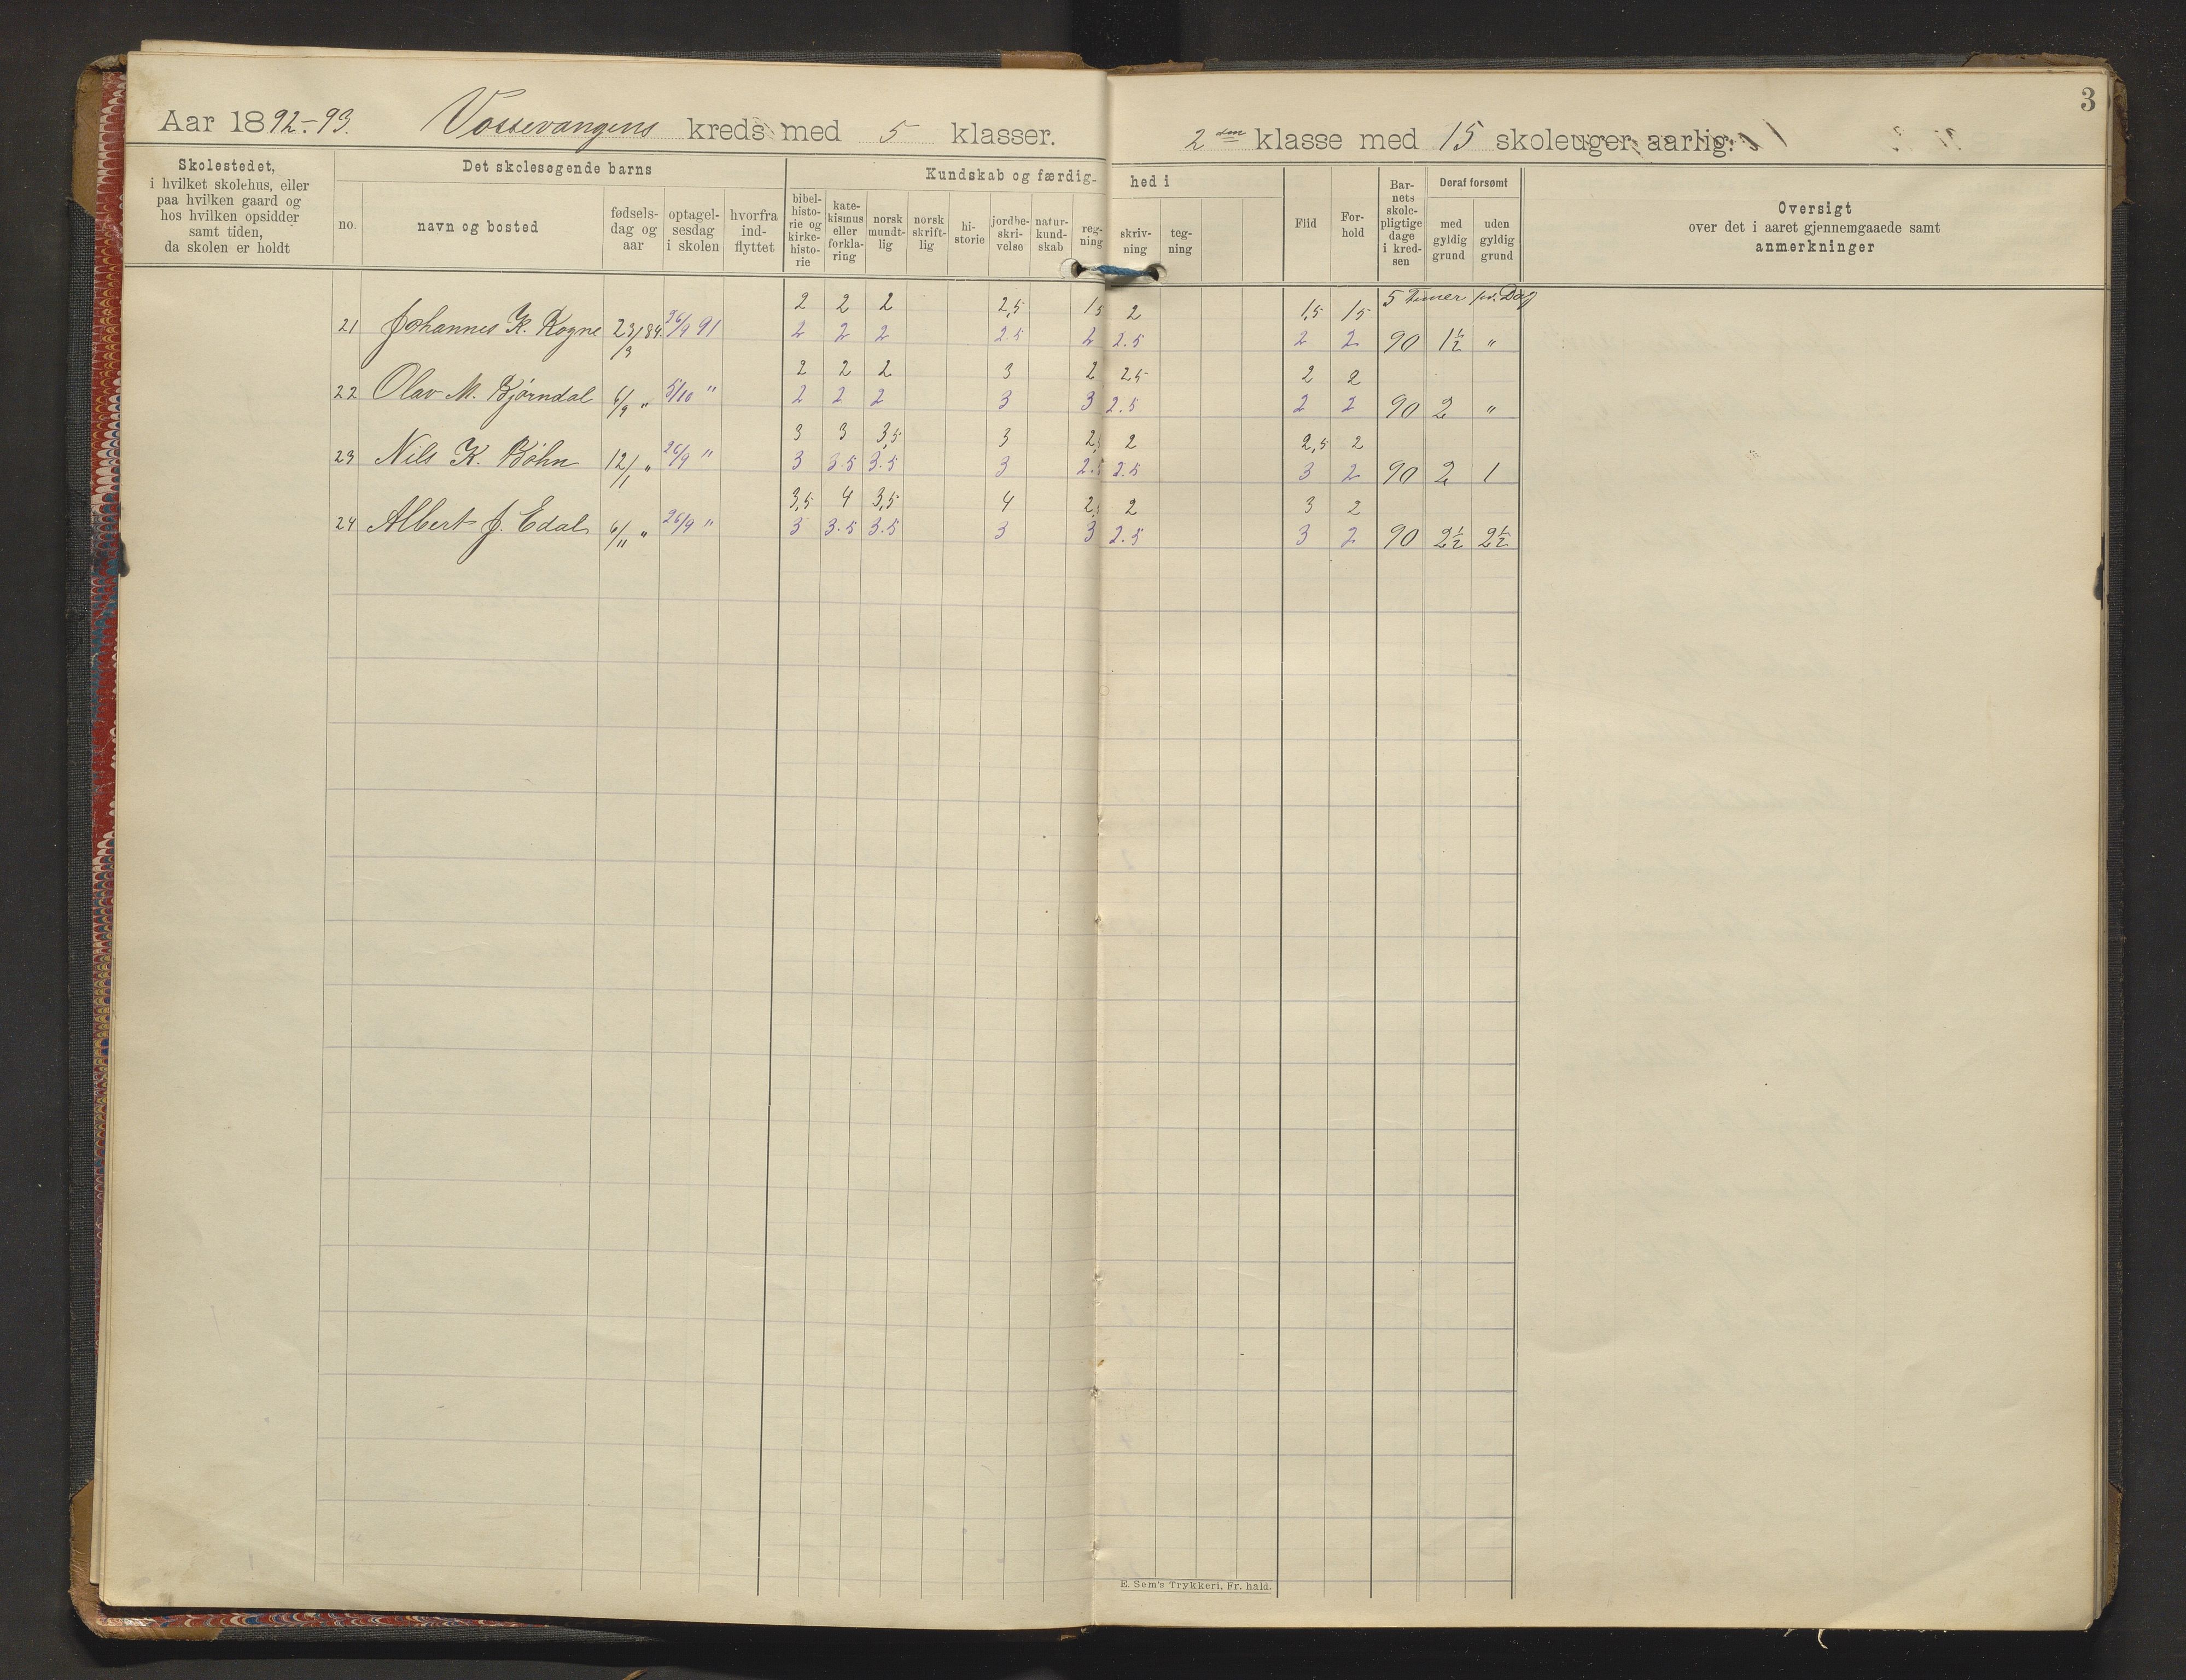 3
Aar 1892-93. Vossevangens kreds med 5 klasser. 2den klasse med 15 skoleuger aarlig.
Skolestedet,
i hvilket skolehus, eller
paa hvilken gaard og
hos hvilken opsidder
samt tiden,
da skolen er holdt
Det skolesøgende barns
no.
navn og bosted
fødsels-
dag og
aar
optagel-
sesdag
i skolen
hvorfra
ind-
flyttet
Kundskab og færdig-
hed i
bibel-
histo-
rie og
kirke-
histo-
rie
kate-
kismus
eller
forkla-
ring
norsk
mundt-
lig
norsk
skrift-
lig
hi-
storie
jordbe-
skri-
velse
natur-
kund-
skab
reg-
ning
skriv-
ning
teg-
ning
Flid
For-
hold
Bar-
nets
skole-
pligtige
dage
i kred-
sen
Deraf forsømt
med
gyldig
grund
uden
gyldig
grund
Oversigt
over det i aaret gjennemgaaede samt
anmerkninger
5 Timer pr. Dag
2 2 2 2,5 1,5 2 1,5 1,5
21 Johannes K. Rogne 23/3 84. 26/9 91 2 2 2 2.5 2 2.5 2 2 90 1½ "
2 2 2 3 2 2,5 2 2
22 Olav M. Bjørndal 6/9 " 5/10 " 2 2 2 3 3 2.5 2 2 90 2 "
3 3 3,5 3 2,5 2 2,5 2
23 Nils K. Bøhn 12/1 " 26/9 " 3 3.5 3.5 3 2.5 2.5 3 2 90 2 1
3,5 4 3,5 4 2,5 2 3 2
24 Albert J. Edal 6/11 " 26/9 " 3 3.5 3.5 3 3 2.5 3 2 90 2½ 2½
E. Sem's Trykkeri, Fr. hald.